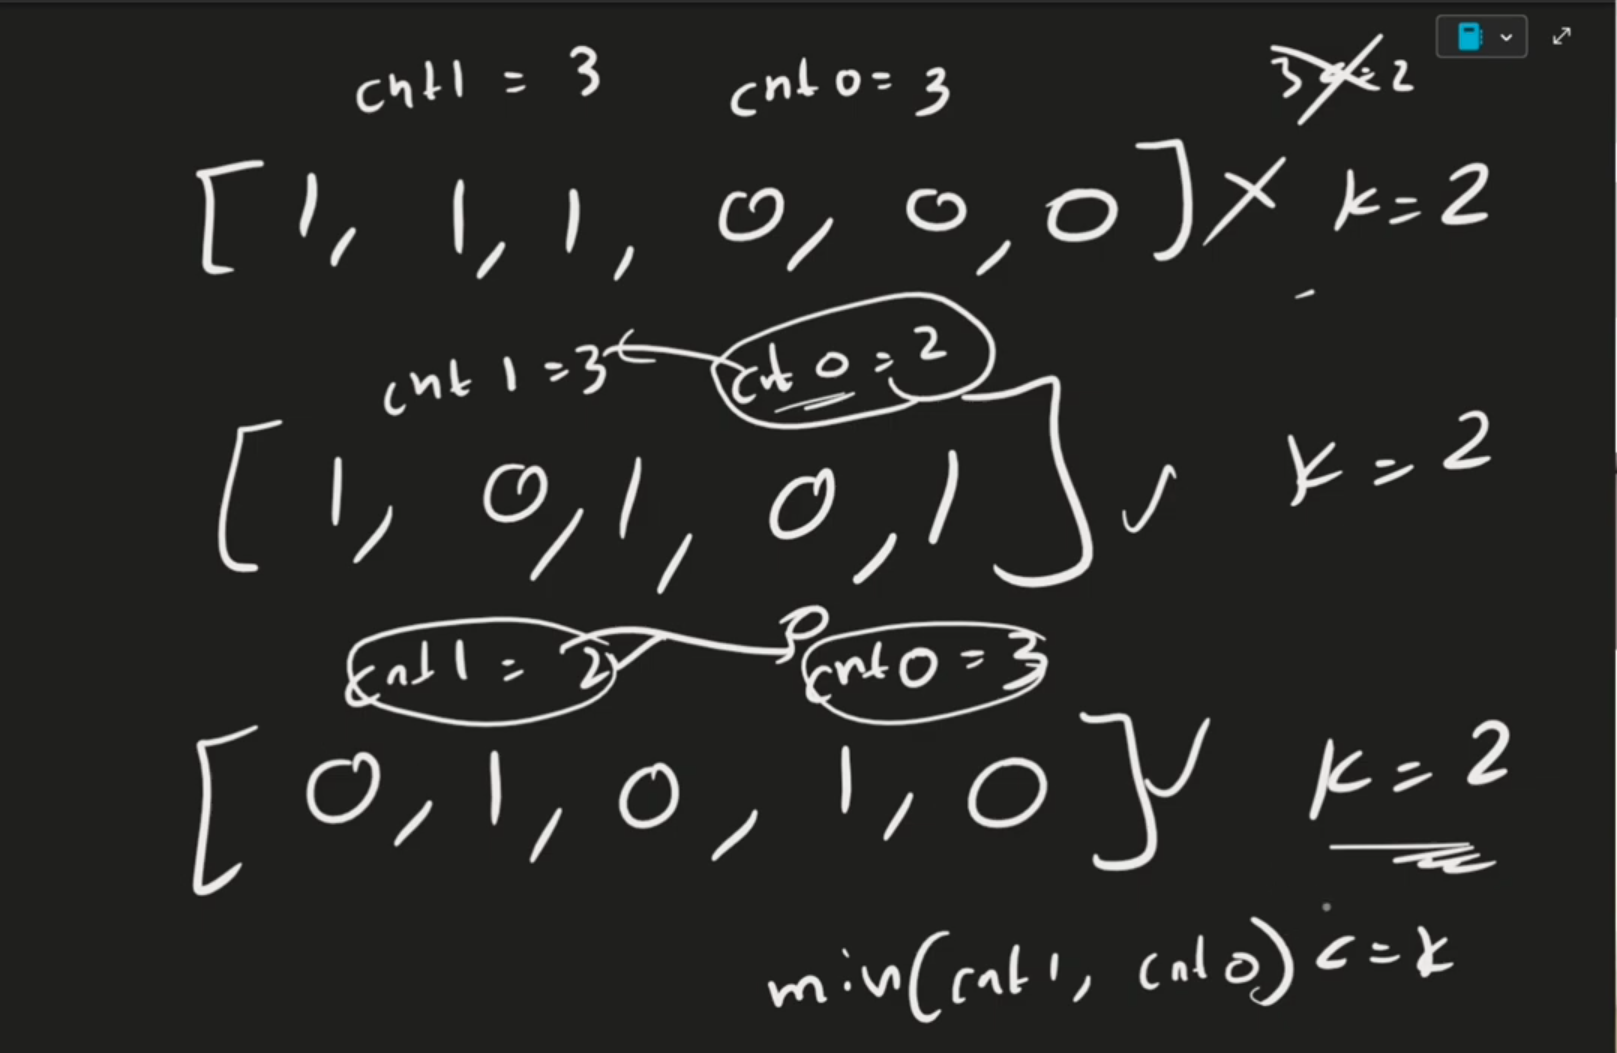 cnt1 = 3 cnt0 = 3 3 <= 2
[1, 1, 1, 0, 0, 0] X k = 2
cnt 1 = 3 cnt 0 = 2
[1, 0, 1, 0, 1] ✓ k = 2
cnt1 = 2 cnt0 = 3
[0, 1, 0, 1, 0] ✓ k = 2
min(cnt1, cnt0) <= k